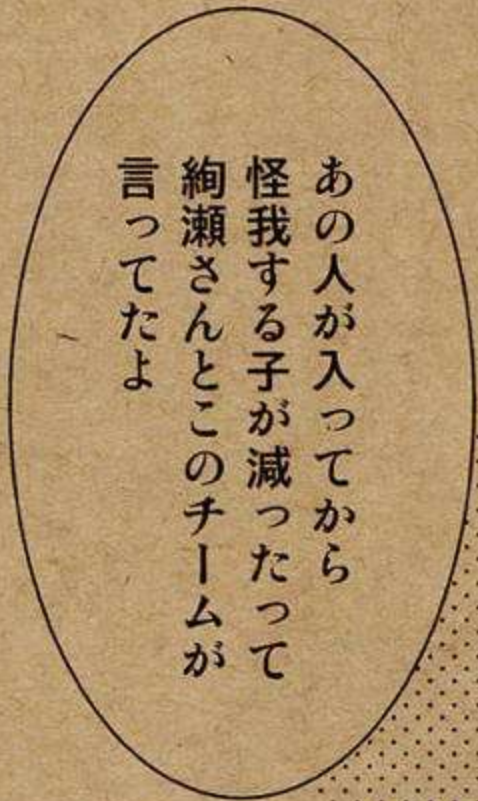 あの人が入ってから
怪我する子が減ったって
絢瀬さんとこのチームが
言ってたよ